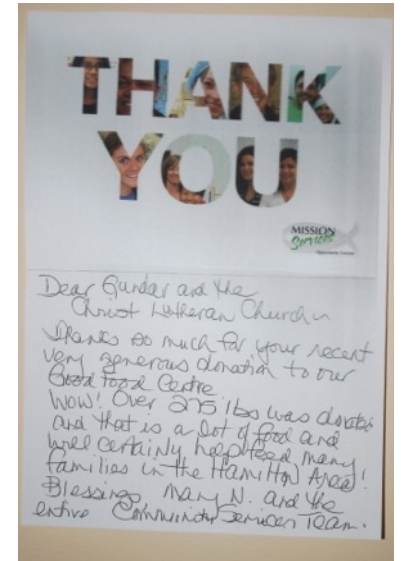 THANK
YOU
MISSION
Services
Dear Gundar and the
Christ Lutheran Church
Thanks so much for your recent
very generous donation to our
Good Food Centre
Wow! Over 275 lbs was donated
and that is a lot of food and
will certainly help feed many
families in the Hamilton Area!
Blessings Mary N. and the
entire Community Services Team.